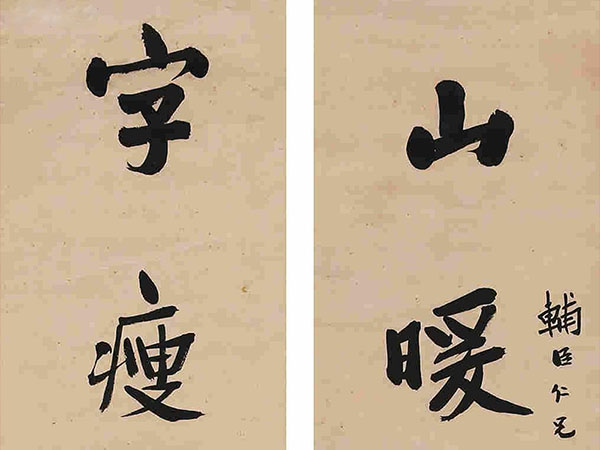 山暖
輔臣仁兄
字瘦